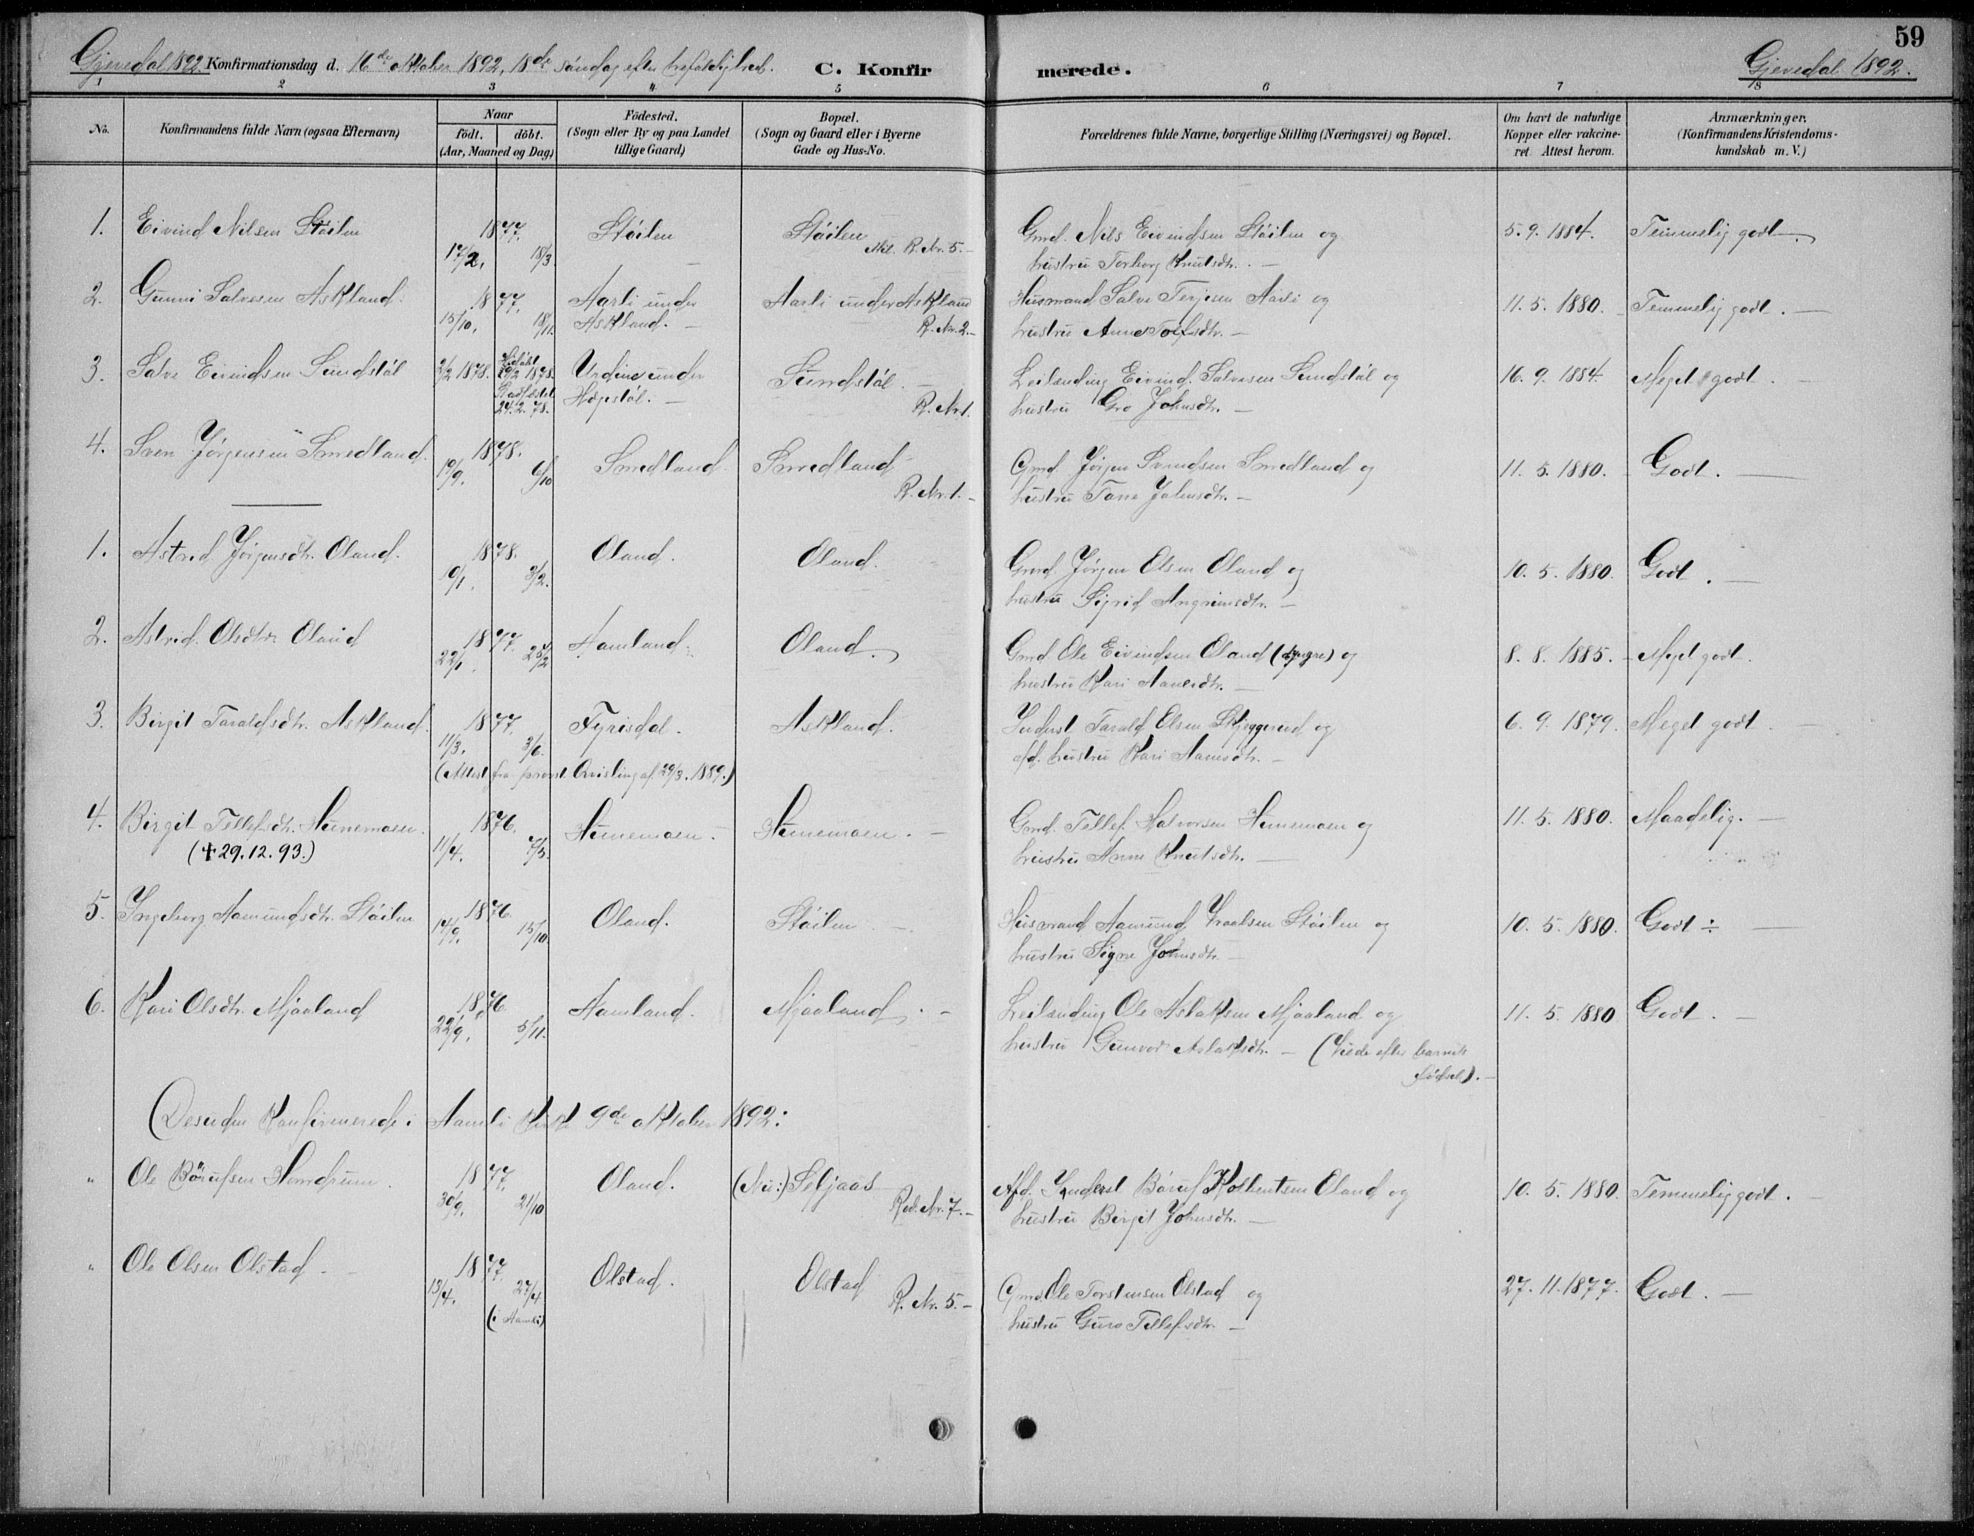 59
Gjevedal 1892 Konfirmationsdag d. 16de oktober 1892, 18de søndag efter trefoldighed. C. Konfirmerede. Gjevedal 1892.
1 2 3 4 5 6 7 8
No. Konfirmandens fulde Navn (ogsaa Efternavn) Naar født. døbt. (Aar, Maaned og Dag) Födested. (Sogn eller By og paa Landet tillige Gaard) Bopæl. (Sogn og Gaard eller i Byerne Gade og Hus-No. Forældrenes fulde Navne, borgerlige Stilling (Næringsvei) og Bopæl. Om havt de naturlige Kopper eller vakcineret Attest herom. Anmærkninger. (Konfirmandens Kristendomskundskab m. V.)
1. Eivind Nilsen Støilen 1877. Støilen Støilen Grmd. Nils Eivindsen Støilen og 5. 9. 1884. Temmelig godt.
17/2. 18/3. R. Nr. 5. hustru Torborg Knutsdtr.
2. Gunni Salvesen Askland. 1877. Aasli under Aasli under Askland Husmand Salve Terjesen Aasli og 11. 5. 1880. Temmelig godt.
15/10. 18/11. Askland. R. Nr. 2. hustru Anne
3. Salve Eivindsen Sundstøl 2/2 1878. Hjdøbt 1878. Urdine under Sundstøl. Leilænding Eivind Salvesen Sundstøl og 16. 9. 1884. Meget godt.
Stadfæstet 24. 2. 78. Høgestøl. R. Nr. 1. hustru Gro Johnsdtr.
4. Sven Jørgensen Smedland. 1878. Smedland. Smedland Grmd. Jørgen Svendsen Smedland og 11. 5. 1880. Godt.
19/9. 6/10 R. Nr. 1. hustru Tone Johnsdtr.
1. Astrid Jørgensdtr. Oland. 1878. Oland. Oland. Grmd. Jørgen Olsen Oland og 10. 5. 1880. Godt.
10/1. 3/2. hustru Sigrid Angrimsdtr.
2. Astrid Olsdtr. Oland 1877. Aamland. Oland. Grmd. Ole Eivindsen Oland (yngre) og 8. 8. 1885. Meget godt.
22/1. 25/2 hustru Kari Aanesdtr.
3. Birgit Taraldsdtr. Askland. 1877. Fyrisdal. Askland. Inderst Tarald Olsen Skjeggerud og 6. 9. 1879. Meget godt.
11/3. 3/6. fd. hustru Kari Aanesdtr.
(Attest fra provst Qvisling af 29/3. 1889.)
4. Birgit Tellefsdtr. Hunemoen. 1876. Hunemoen. Hunemoen. Grmd. Tellef Halvorsen Hunemoen og 11. 5. 1880. Maadelig.
(✝ 29. 12. 93.) 11/4. 7/5. hustru Anne Knutsdtr.
5. Ingeborg Aamundsdtr. Støilen 1876. Oland. Støilen Husmand Aamund Vraalsen Støilen og 10. 5. 1880. Godt ÷
14/9. 15/10. hustru Signe Johnsdtr.
6. Kari Olsdtr. Mjaaland 1876. Aamland. Mjaaland. Leilænding Ole Aslaksen Mjaaland og 11. 5. 1880 Godt.
22/9. 5/11. hustru Gunvor Aslaksdtr. (Viede efter barnets
fødsel).
(Desuden Konfirmerede i Aamli kirke 9de oktober 1892:
" Ole Børufsen Homdrum. 1877. Oland. (Nu:) Seljaas Afd. Inderst Børuf Kolbentsen Oland og 10. 5. 1880. Temmelig godt.
30/9. 21/10 Rod. Nr. 7. hustru Birgit Johnsdtr.
" Ole Olsen Olstad. 1877. Olstad. Olstad Grmd. Ole Torstensen Olstad og 27. 11. 1877. Godt.
13/4. 27/4 R. Nr. 5. hustru Guro Tellefsdtr.
(i Aamli)